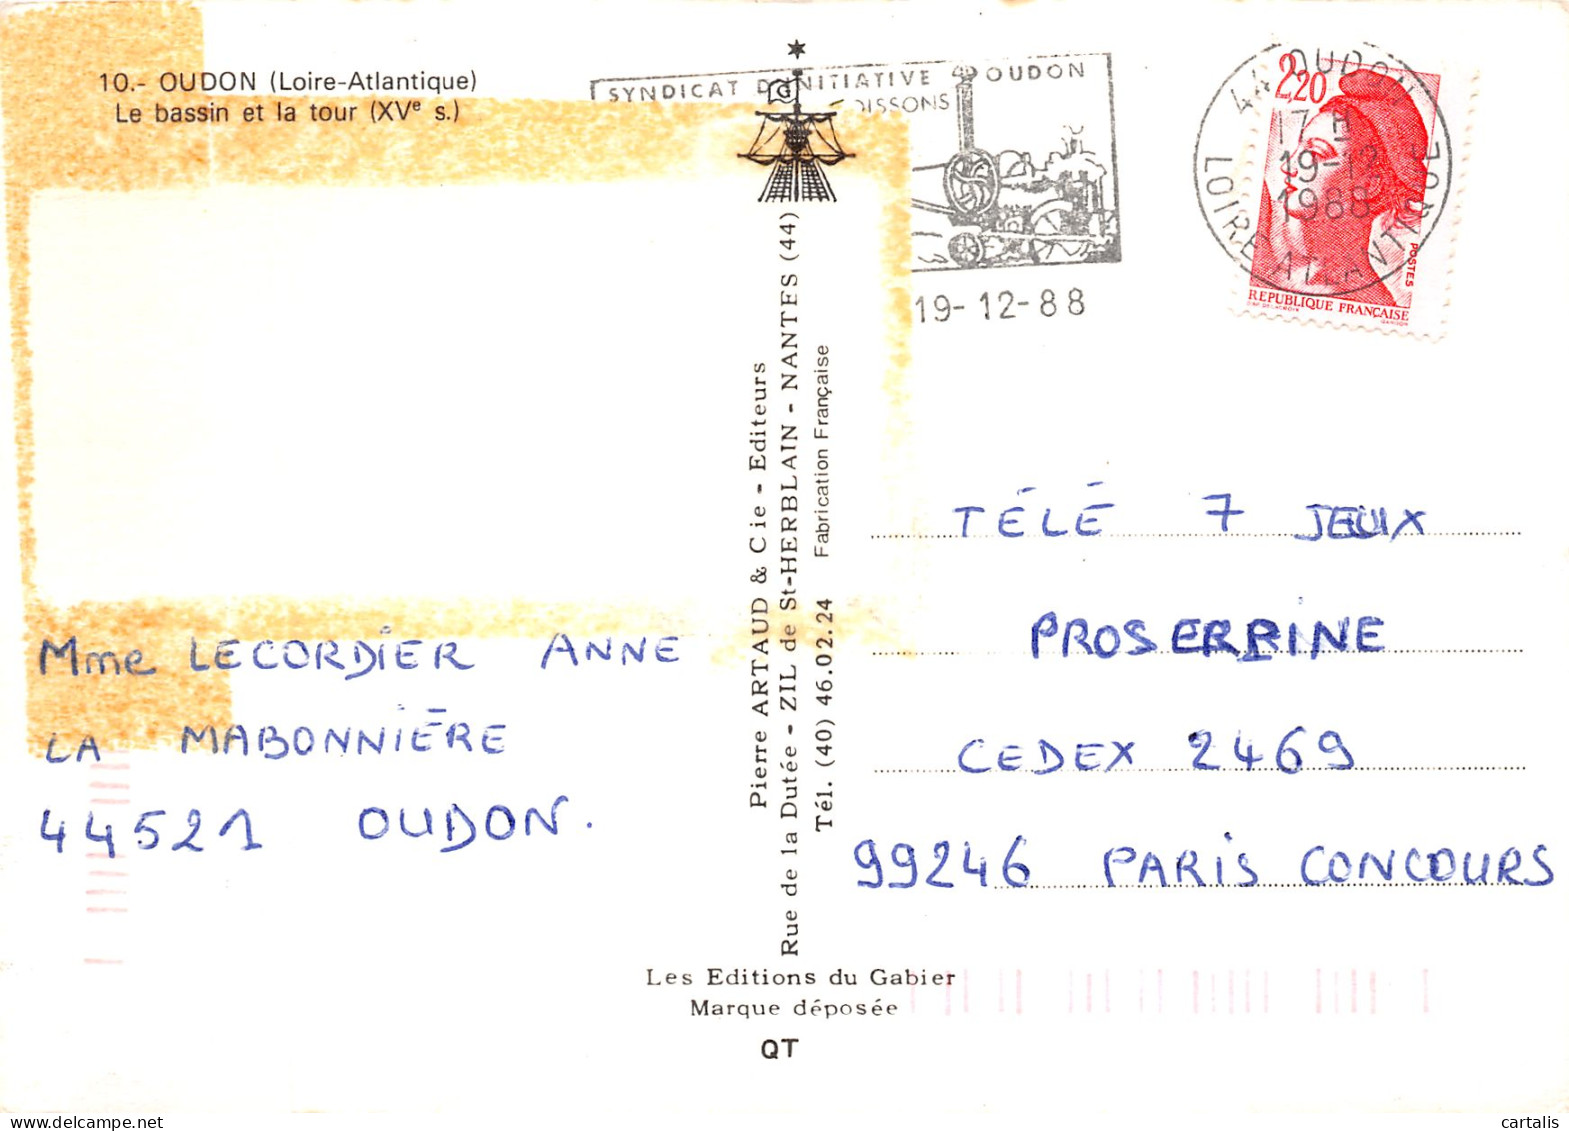 10.- OUDON (Loire-Atlantique)
Le bassin et la tour (XVe s.)
SYNDICAT D'INITIATIVE OUDON
19-12-88
44 OUDON
17 H
19-12
1988
LOIRE ATLANTIQUE
2,20
POSTES
REPUBLIQUE FRANÇAISE
Pierre ARTAUD & Cie - Editeurs
Rue de la Dutée - ZIL de St-HERBLAIN - NANTES (44)
Tél. (40) 46.02.24 Fabrication Française
Mme LECORDIER ANNE
LA MABONNIÈRE
44521 OUDON.
TÉLÉ 7 JEUX
PROSERPINE
CEDEX 2469
99246 PARIS CONCOURS
Les Editions du Gabier
Marque déposée
QT
cartalis